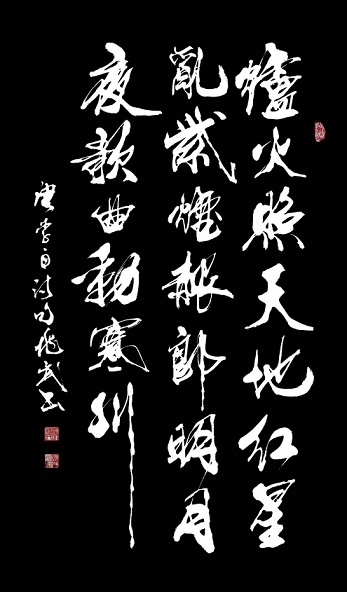 爐火照天地红星
亂紫煙赧郎明月
夜歌曲動寒川
唐李白诗句武书